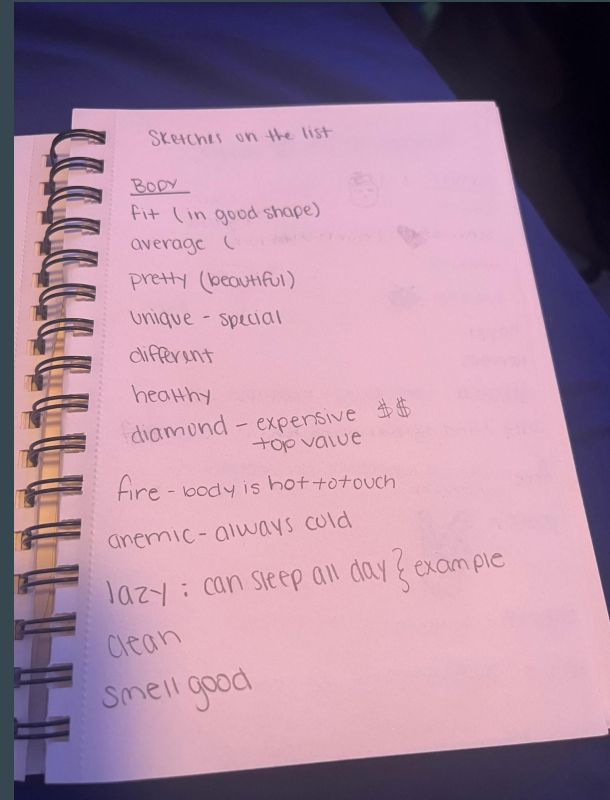 Sketches on the list
Body
fit (in good shape)
average (
pretty (beautiful)
unique - special
different
healthy
diamond - expensive $$
top value
fire - body is hot to touch
anemic - always cold
lazy : can sleep all day } example
clean
smell good